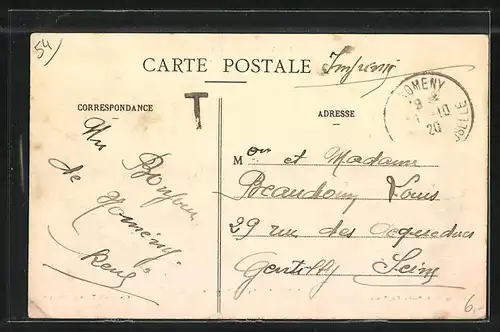 54
CARTE POSTALE
Imprimé
NOMENY
19 *
1 -10
20
MOSELLE
T
CORRESPONDANCE
ADRESSE
Un Bonjour
de Nomény
René
Mon et Madame
Beaudoin Louis
29 rue des Acqueducs
Gentilly Seine
6,-